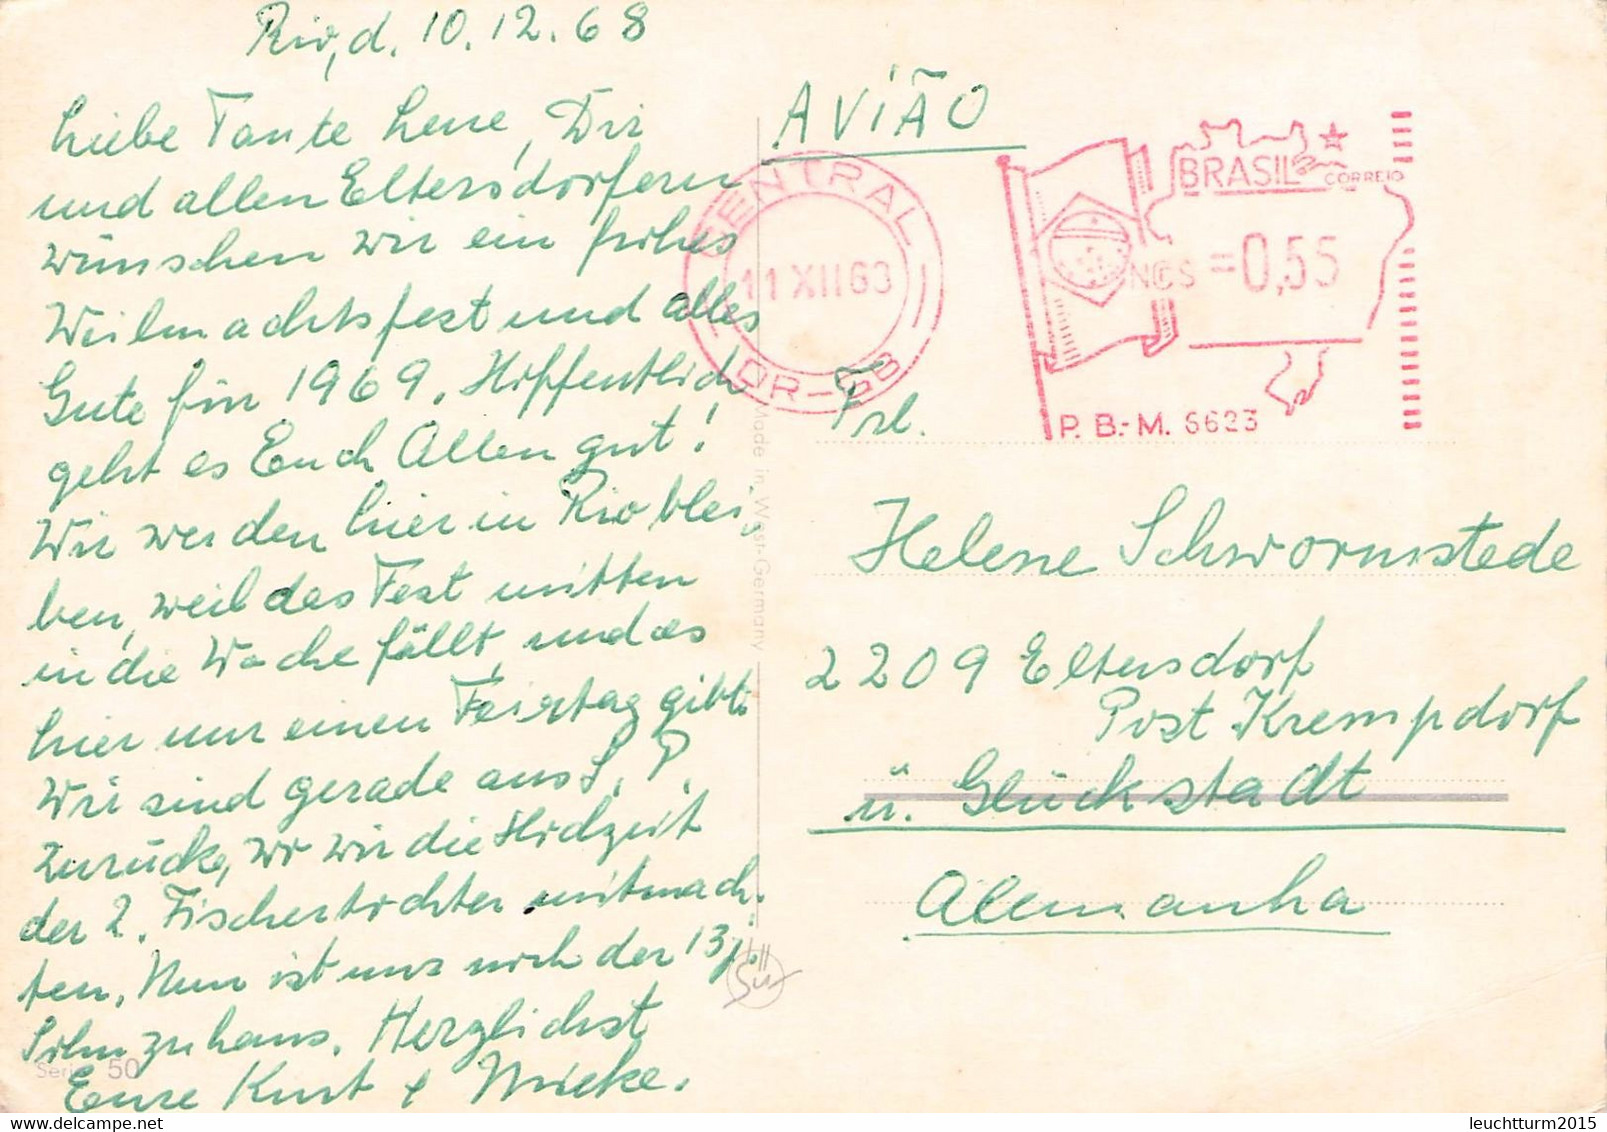 Rio, d. 10.12.68
Liebe Tante Lene, Dir
und allen Eltersdorfern
wünschen wir ein frohes
Weihnachtsfest und alles
Gute für 1969. Hoffentlich
geht es Euch Allen gut!
Wir werden hier in Rio blei-
ben, weil das Fest mitten
in die Woche fällt, und es
hier nur einen Feiertag gibt.
Wir sind gerade aus S. P.
zurück, wo wir die Hochzeit
der 2. Fischertochter mitmach-
ten. Nun ist nur noch der 13j.
Sohn zuhaus. Herzlichst
Eure Kurt + Mieke.
Serie 50
Made in West-Germany
AVIÃO
CENTRAL
11 XII 63
DR-GB
BRASIL
CORREIO
NCR$ =0,55
P. B.-M. 6623
Frl.
Helene Schwormstede
2209 Eltersdorf
Post Krempdorf
ü. Glückstadt
Alemanha
leuchtturm2015